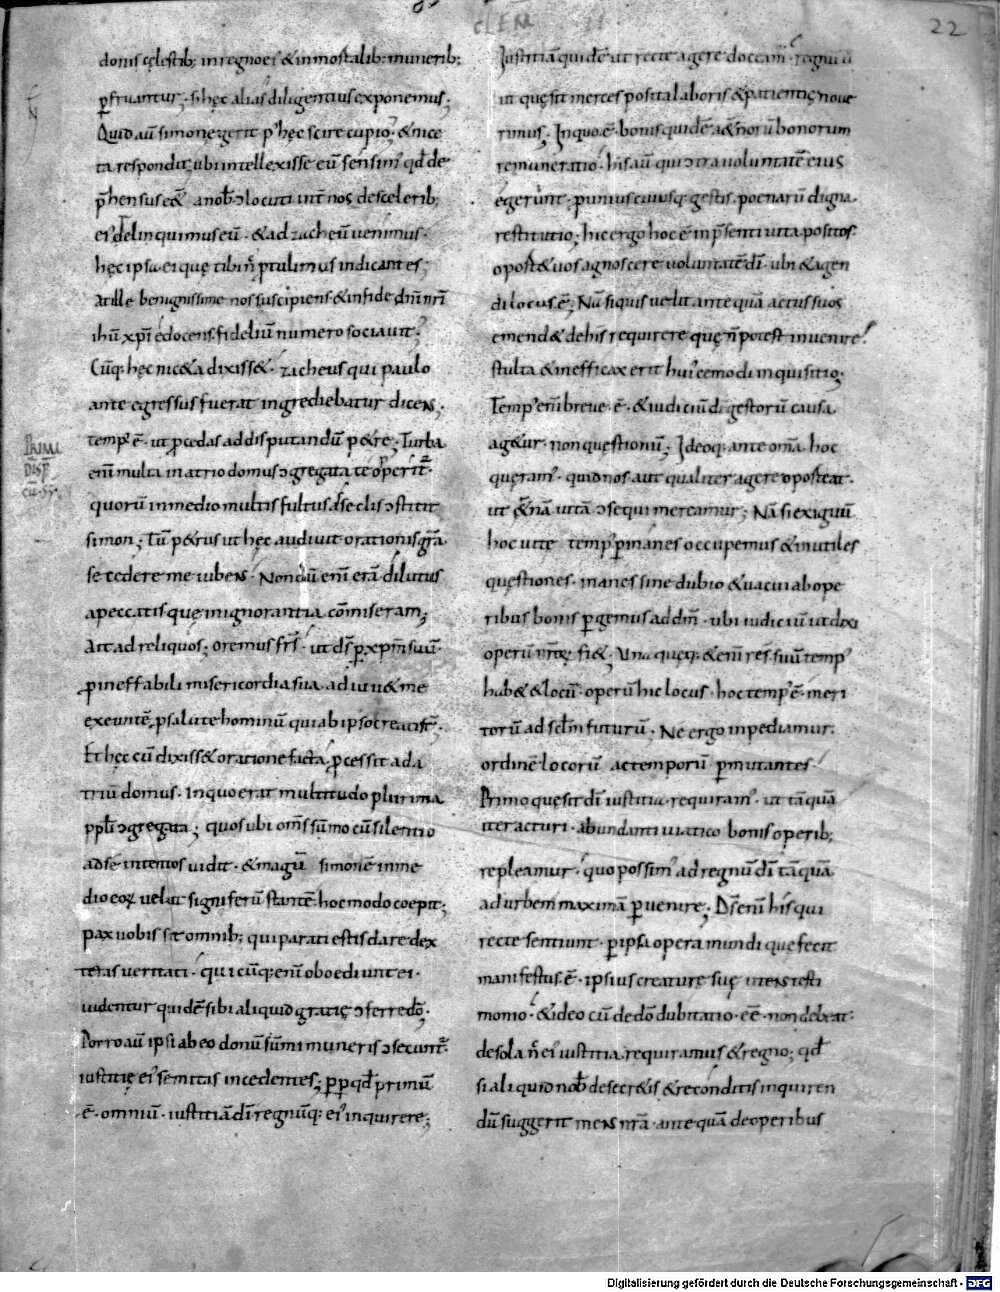 CLEM II
22
donis cęlestib; in regno ei' & inmortalib: munerib;
p̄fruantur; s; hęc alias diligentius exponemus;
Quid aū simonę gerit p' hęc scire cupio; & nice
ta respondit; ubi intellexisse eū sensim' qd̄ de
p̄hensus eē& a nob̄ ɔlocuti int̄ nos descelerib;
ei' delinquimus eū · & ad zacheū uenimus ·
hęc ipsa ei quę tibi n̄ ptulimus indicantes;
At ille benignissime nos suscipiens & infide dn̄i nr̄i
ihū xp̄i edocens · fideliū numero sociauit;
Cūq: hęc niceta dixiss& · zacheus qui paulo
ante egressus fuerat ingrediebatur dicens ·
temp' ē · ut p̄cedas ad disputandū p&re; Turba
enī multa in atrio domus ɔgregata te oper̄it ·
quorū in medio multis fultus dsēclis ɔstitit
simon; Tū p&rus ut hęc audiuit · orationis gr̄a
secedere me iubens · Nondū enī erā dilutus
a peccatis quę in ignorantia cōmiseram;
Ait ad reliquos; oremus fr̄s · ut dс̄ p̄ xp̄m suū ·
p̄ ineffabili misericordia sua adiuu& me
exeuntē · p̄ salute hominū qui ab ipso creati st̄;
Et hęc cū dixiss& oratione facta, p̄cessit ad a
triū domus · in quo erat multitudo plurima
ppl̄i ɔgregata; quos ubi om̄s sūmo cū silentio
ad se intentos uidit · & magū simonē in me
dio eoꝝ uelut signiferū stantē · hoc modo coepit;
pax uobis sit omnib; qui parati estis dare dex
teras ueritati · quicūq: enī oboediunt ei ·
uidentur quidē sibi aliquid gratię ɔferre dō;
Porro aū ipsi ab eo donū sūmi muneris ɔsecunt̄ ·
iustitię ei' semitas incedentes; p̄pqd̄ primū
ē · omniū · iustitiā dī regnūq: ei' inquirere;
Iustitiā quidē ut recte agere doceam' · regnū ū
ut quę sit merces posita laboris & patientię noue
rimus; In quo ē · bonis quidē &norū bonorum
remuneratio · his aū qui ɔtra uoluntatē eius
egerunt · p unius cuiusq; gestis · poenarū digna
restitutio; hic ergo hoc ē in p̄senti uita positos
oport& uos agnoscere uoluntatē dī · ubi & agen
di locus ē; Nā si quis uelit ante quā actus suos
emend& de his requirere quę n̄ potest inuenire ·
stulta & inefficax erit hui'cemodi inquisitio;
Temp' enī breue ē · & iudiciū dī gestorū causa
ag&ur · non questionū; Ideoq: ante om̄a hoc
quęram' · quid nos aut qualiter agere oporteat ·
ut &nā uitā ɔsequi mereamur; Nā si exiguū
hoc uitę temp' p̄ inanes occupemus & inutiles
quęstiones · inanes sine dubio & uacui ab ope
ribus bonis p̄gemus ad dm̄ · ubi iudiciū ut dixi
operū nr̄oꝝ fi&; Una quęq: & enī res suū temp'
hab& & locū · operū hic locus · hoc temp' ē · meri
torū ad sclm̄ futurū; Ne ergo inpediamur
ordinē locorū ac temporū p̄mutantes ·
Primo que sit dī iustitia requiram' · ut tāquā
iter acturi · abundanti uiatico bonis operib;
repleamur · quo possim' ad regnū dī tāquā
ad urbem maximā p̄uenire; Ds̄ enī his qui
recte sentiunt · p̄ ipsa opera mundi que fecit
manifestus ē · ipsius creaturę suę utens testi
monio · & ideo cū de dō dubitatio · eē · non debeat ·
de sola n̄ ei' iustitia requiramus & regno; qd̄
si aliquid nob̄ de secr&is & reconditis inquiren
dū suggerit mens nr̄a · ante quā de operibus
Digitalisierung gefördert durch die Deutsche Forschungsgemeinschaft - DFG